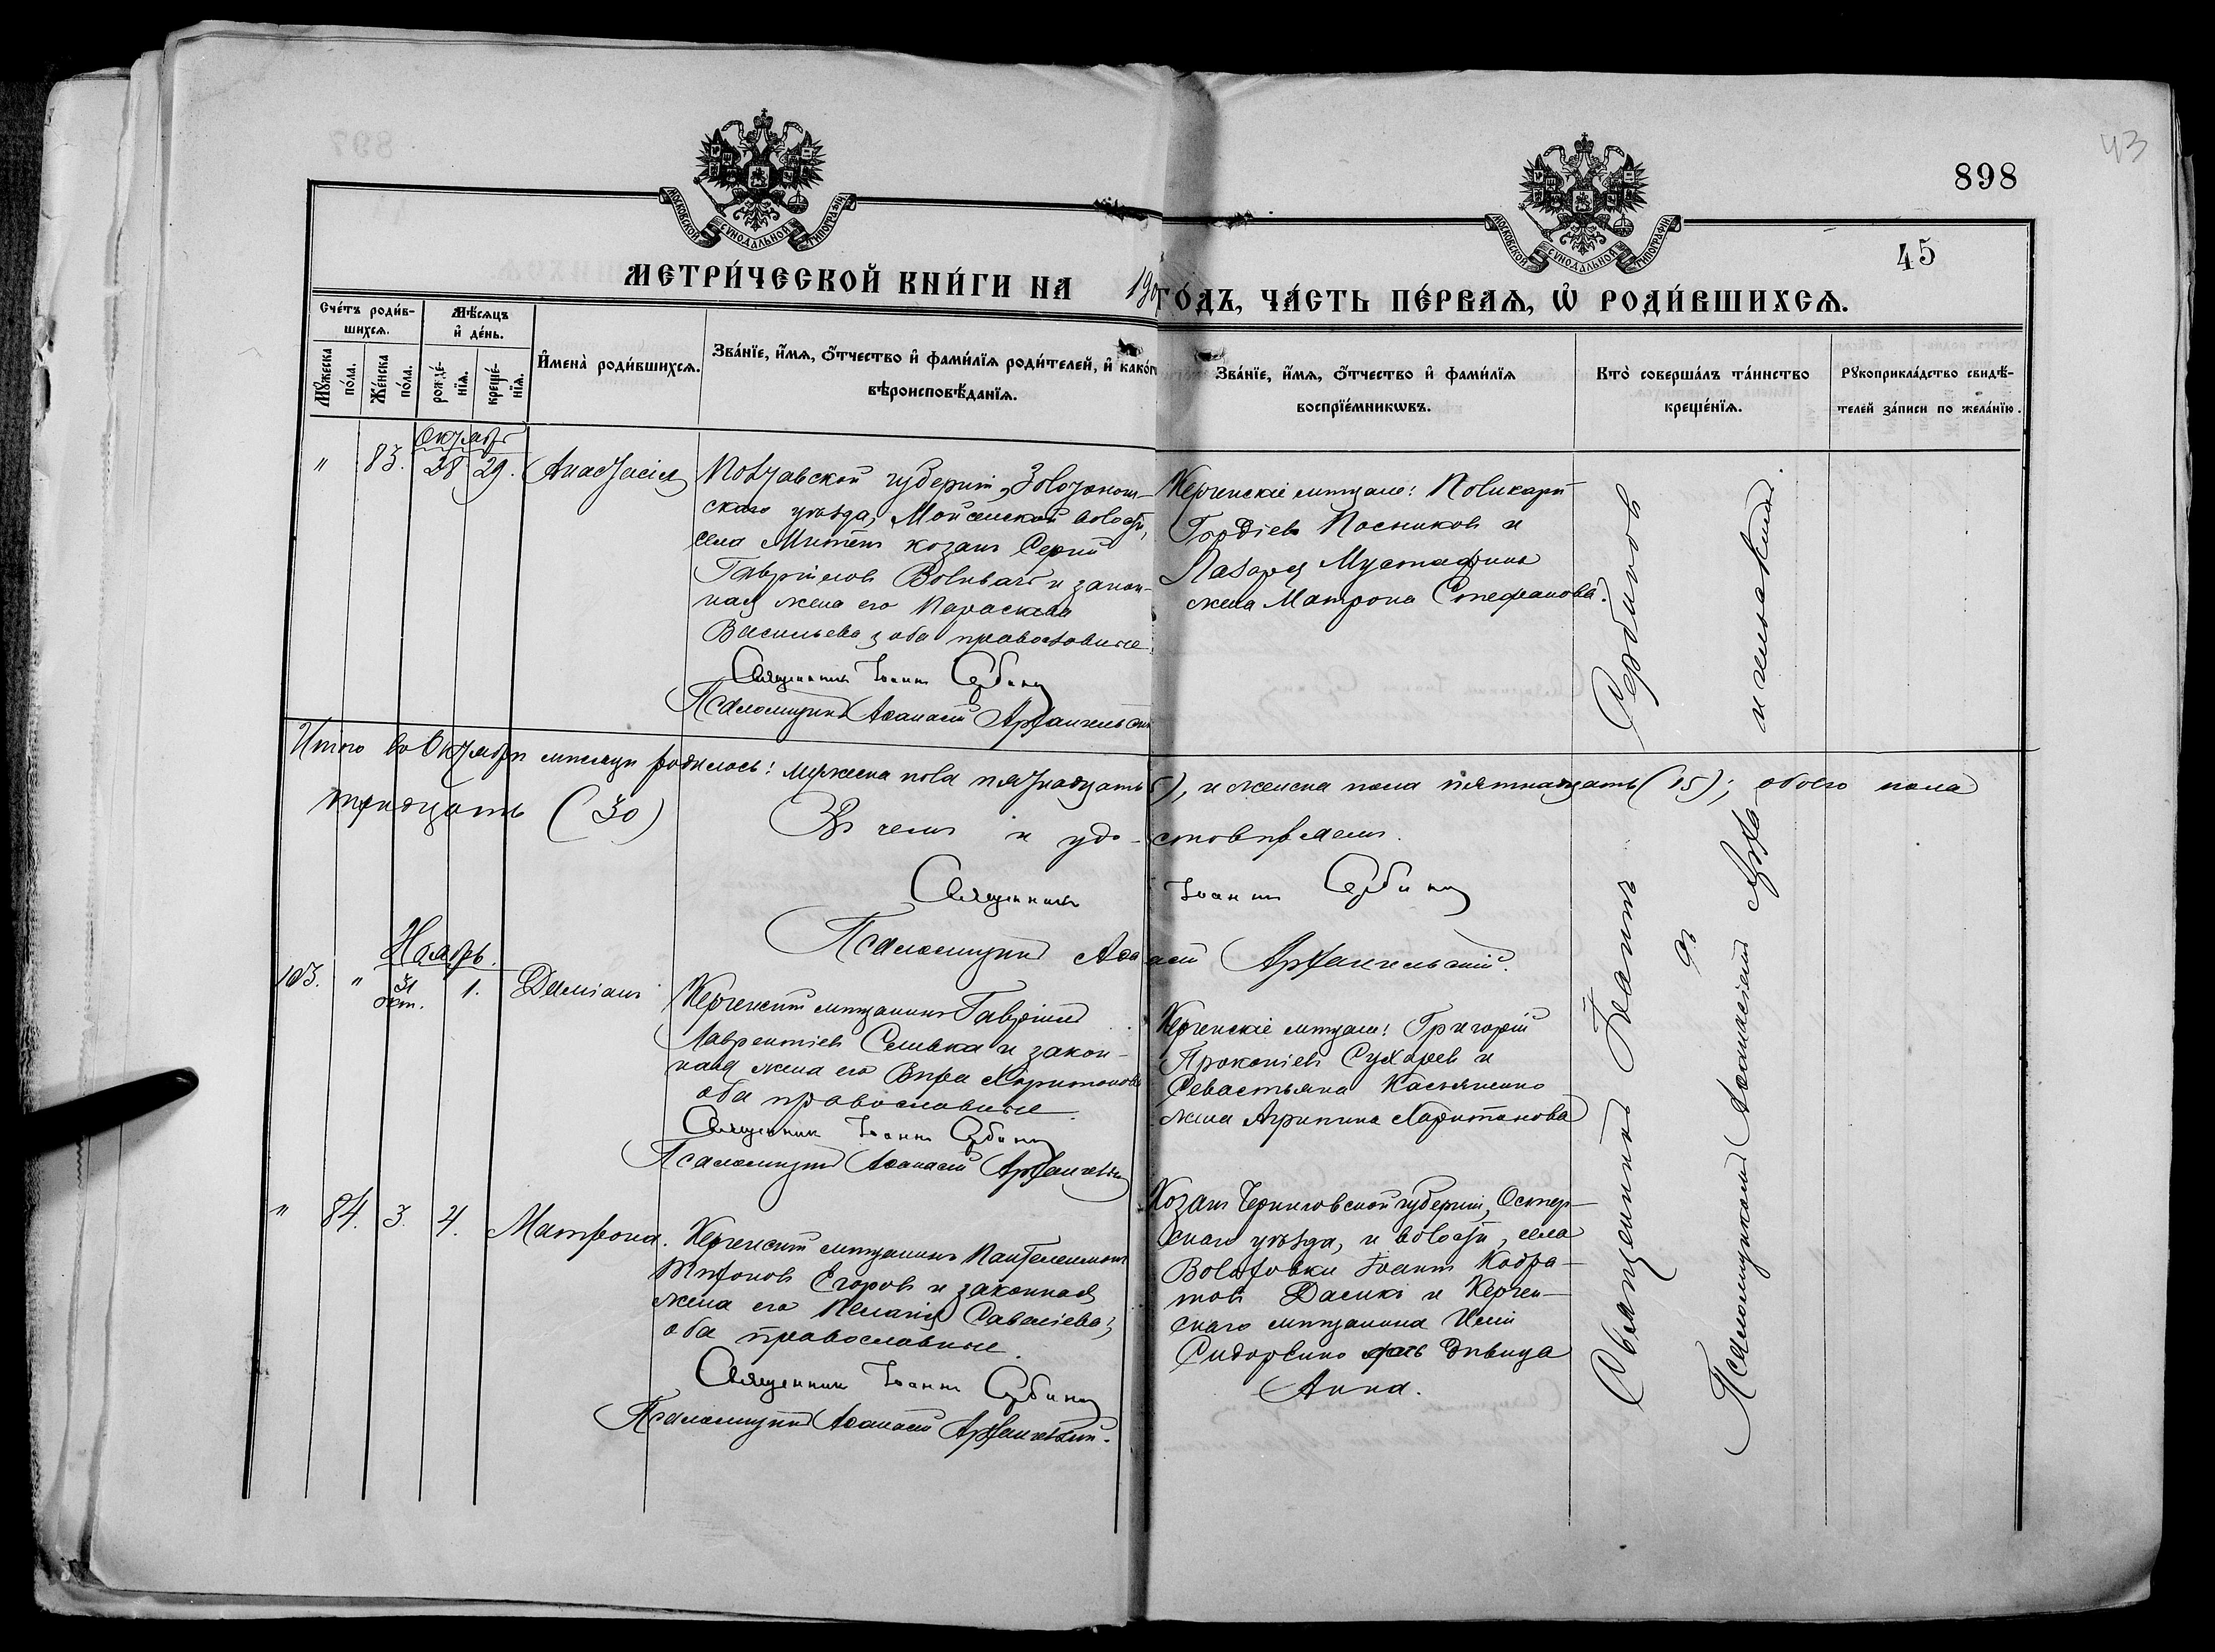 43
898
45
МОСКОВСКОЙ СѴНОДАЛЬНОЙ ТИПОГРАФІИ
МОСКОВСКОЙ СѴНОДАЛЬНОЙ ТИПОГРАФІИ
МЕТРИ́ЧЕСКОЙ КНИ́ГИ НА 190
ГО́ДЪ, ЧА́СТЬ ПЕ́РВАѦ, Ѡ҆ РОДИ́ВШИХСѦ.
Сче́тъ роди́в-
шихсѧ.
Мꙋ́жеска по́ла.
Же́нска по́ла.
Мѣ́сѧцъ
и҆ де́нь.
рожде́-
нїѧ.
креще́-
нїѧ.
И҆мена̀ роди́вшихсѧ.
Зва́нїе, и҆́мѧ, ѻ҆́тчество и҆ фами́лїѧ роди́телей, и҆ како́гѡ
вѣроисповѣ́данїѧ.
Зва́нїе, и҆́мѧ, ѻ҆́тчество и҆ фами́лїѧ
воспрїе́мникѡвъ.
Кто̀ соверша́лъ та́инство
креще́нїѧ.
Рꙋкоприкла́дство свидѣ́-
телей за́писи по жела́нїю.
Октябрь
" 83. 28 29. Анастасія
Полтавской губерніи, Золотонош-
скаго уѣзда, Мойсенской волости,
села козакъ Сергій
Гавріиловъ и закон-
ная жена его Параскева
Васильева, оба православные.
Священникъ Іоаннъ Сербиновъ
Псаломщикъ Аѳанасій Архангельскій
Керченскіе мѣщане: Поликарпъ
Гордіевъ Посниковъ и
Лазаря Мустафина
жена Матрона Стефанова.
Итого въ Октябрѣ мѣсяцѣ родилось: мужеска пола пятнадцать ), и женска пола пятнадцать (15); обоего пола
тридцать (30)
Въ чемъ и удо-стовѣряемъ.
Священникъ Іоаннъ Сербиновъ
Псаломщикъ Аѳанасій Архангельскій.
Ноябрь.
103. " 31 окт. 1. Даміанъ
Керченскій мѣщанинъ Гавріилъ
Лаврентіевъ Селивка и закон-
ная жена его Вѣра Харитонова
оба православные.
Священникъ Іоаннъ Сербиновъ
Псаломщикъ Аѳанасій Архангельскій
Керченскіе мѣщане: Григорій
Прокопіевъ Сухаревъ и
Севастьяна Касьяненко
жена Агрипина Харитонова
" 84. 3. 4. Матрона.
Керченскій мѣщанинъ Пантелеимонъ
Трифоновъ Егоровъ и законная
жена его Пелагія Савеліева;
оба православные.
Священникъ Іоаннъ Сербиновъ
Псаломщикъ Аѳанасій Архангельскій.
Козакъ Черниговской губерніи, Остер-
скаго уѣзда, и волости, села
Іоаннъ Кодра-
товъ и Керчен-
скаго мѣщанина Иліи
Сидоренко дочь дѣвица
Анна.
Священникъ Іоаннъ Сербиновъ
съ
Псаломщикомъ Аѳанасіемъ Арха-
нгельскимъ.